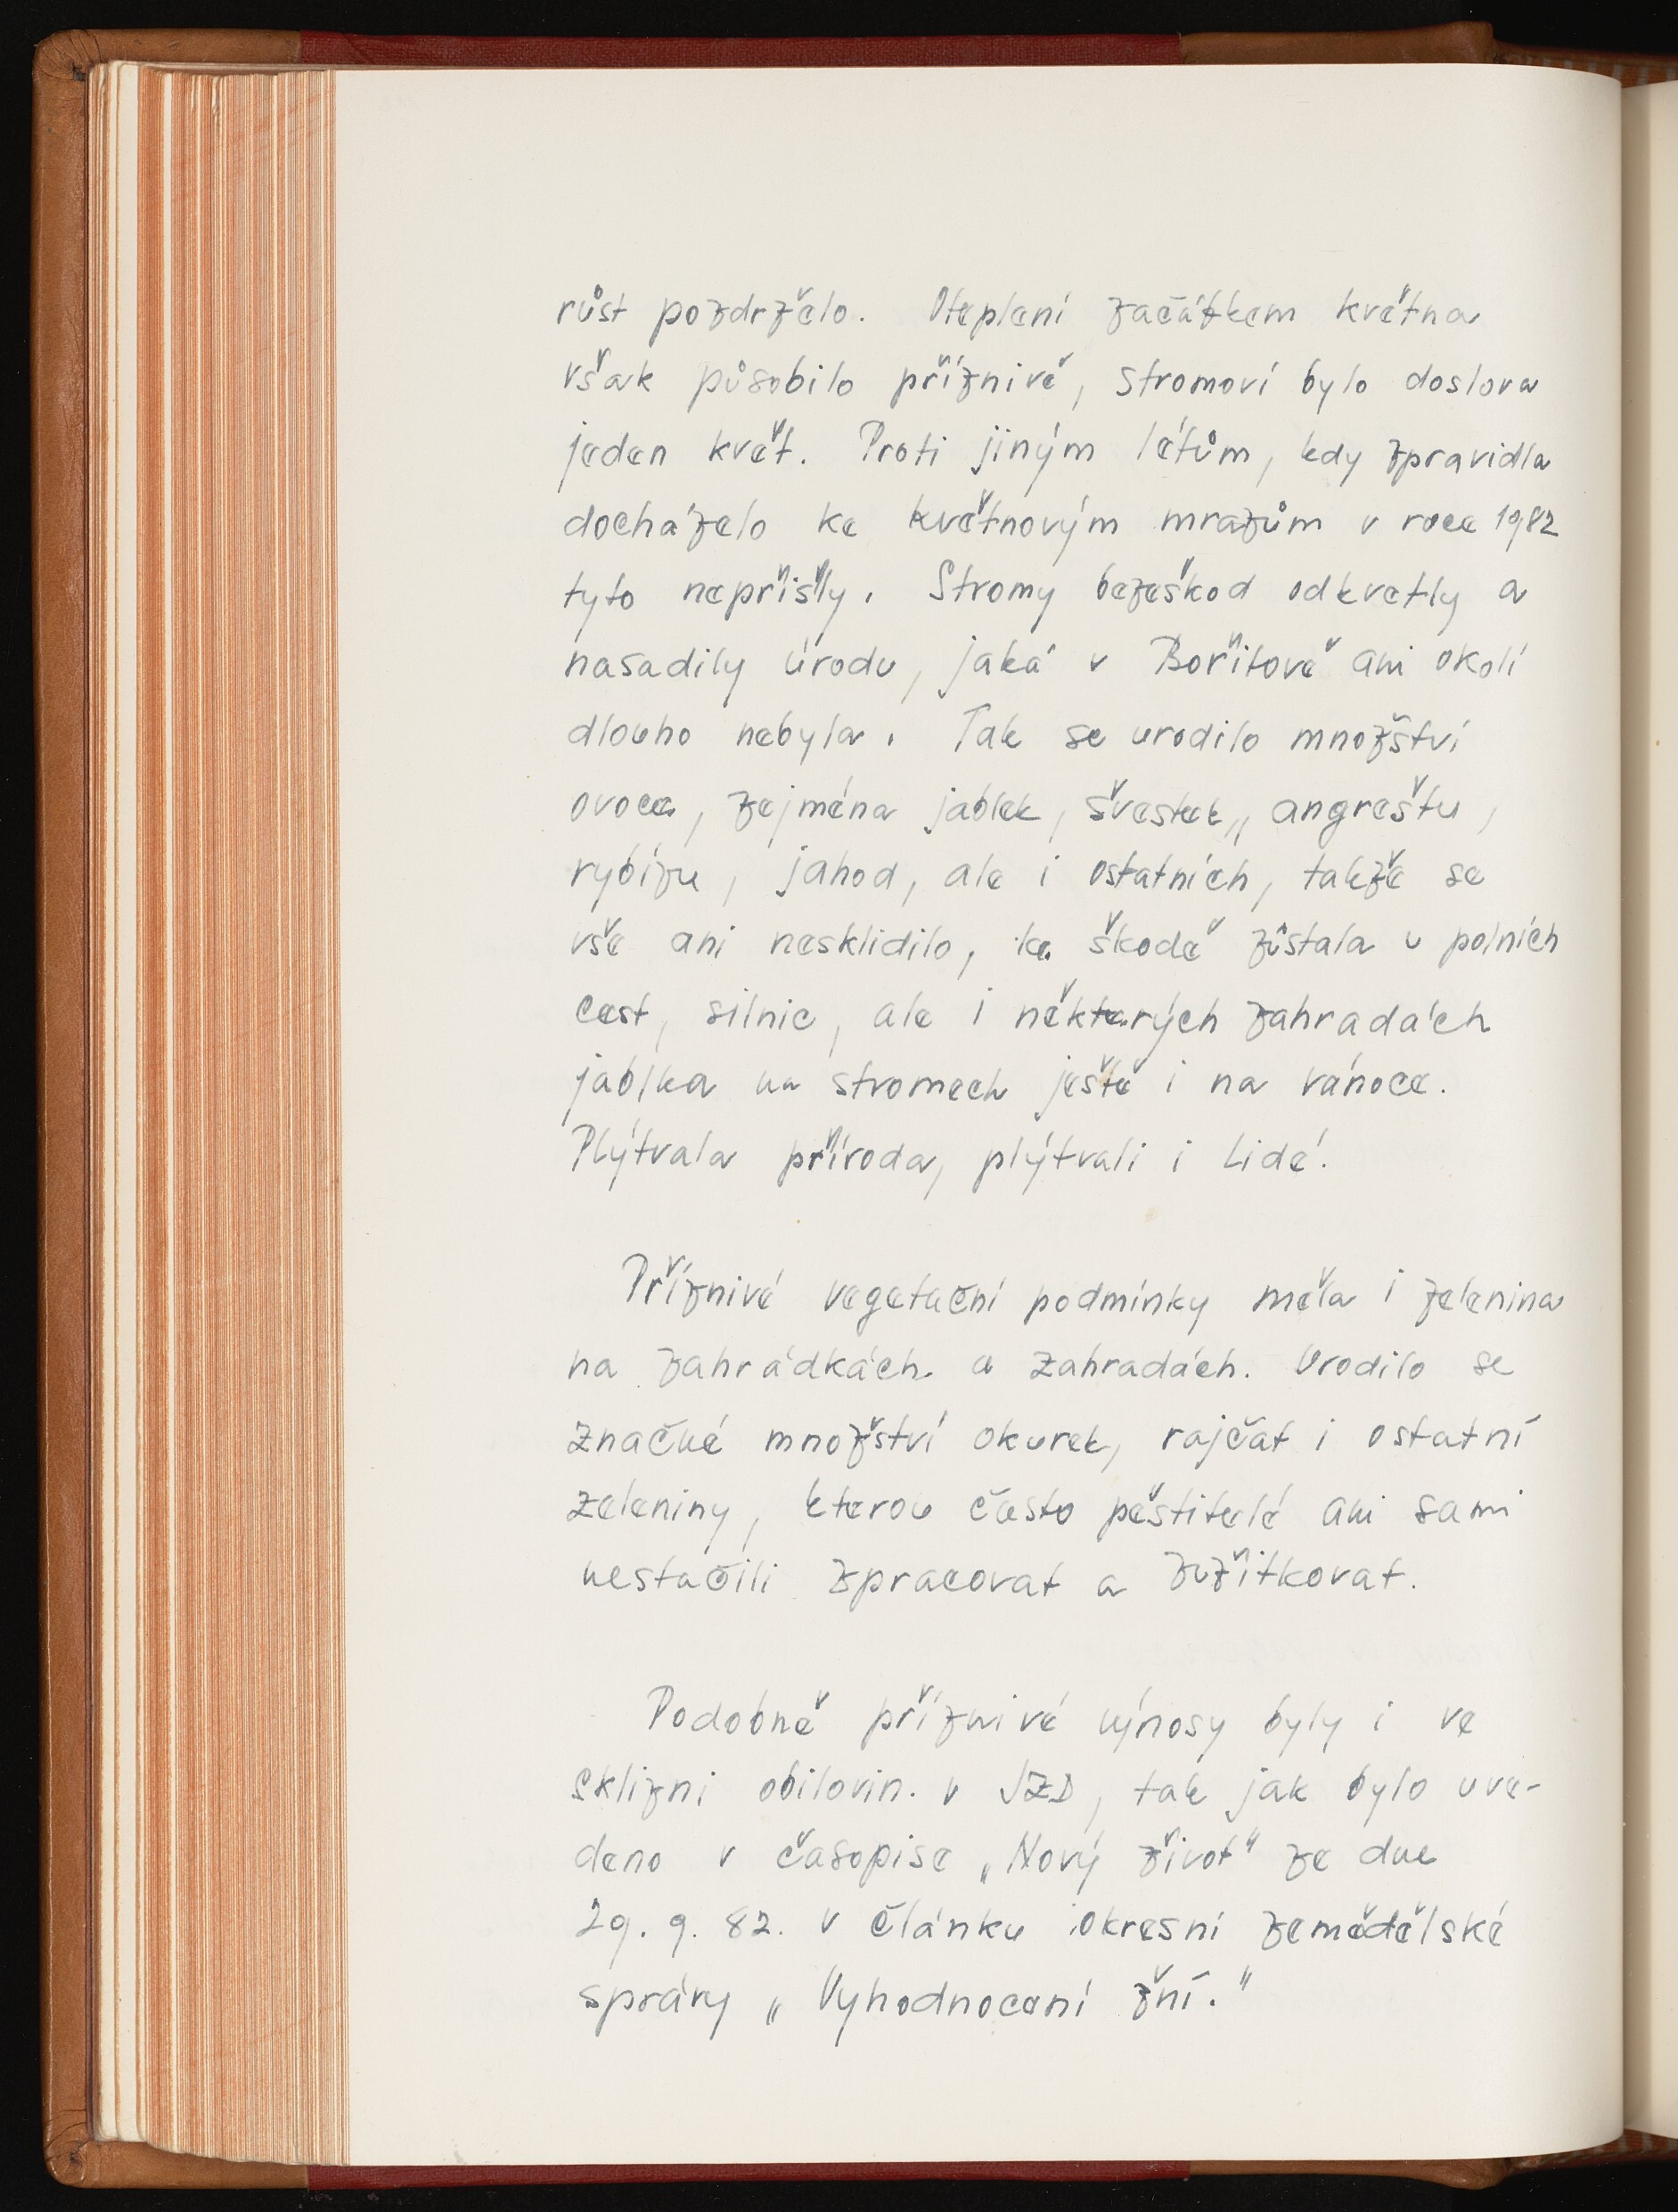 růst pozdrželo. Oteplení začátkem května
však působilo příznivě, stromoví bylo doslova
jeden květ. Proti jiným létům, kdy zpravidla
docházelo ke květnovým mrazům v roce 1982
tyto nepřišly. Stromy bezeškod odkvetly a
nasadily úrodu, jaká v Bořitově ani okolí
dlouho nebyla. Tak se urodilo množství
ovoce, zejména jablek, švestek,, angreštu,
rybízu, jahod, ale i ostatních, takže se
vše ani nesklidilo, ke škodě zůstala u polních
cest, silnic, ale i některých zahradách
jablka na stromech ještě i na vánoce.
Plýtvala příroda, plýtvali i lidé.
Příznivé vegetační podmínky měla i zelenina
na zahrádkách a zahradách. Urodilo se
značné množství okurek, rajčat i ostatní
zeleniny, kterou často pěstitelé ani sami
nestačili zpracovat a zužitkovat.
Podobně příznivé výnosy byly i ve
sklizni obilovin. v JZD, tak jak bylo uve-
deno v časopise „Nový život" ze dne
29. 9. 82. v článku Okresní zemědělské
správy „Vyhodnocení žní."